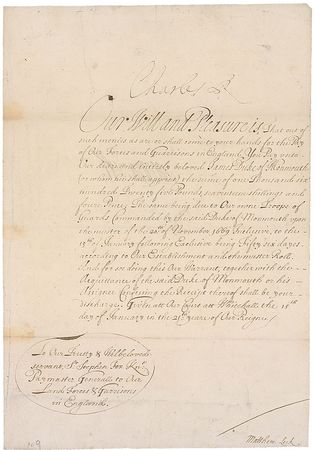 Charles R
Our Will and Pleasure is That out of
such monies as are or shall come to your hands for the Pay
of Our Forces and Guarrisons in England, You Pay unto
Our deare and entirely beloved James Duke of Monmouth
(or whom hee shall appoint) the sume of one Thousand six
hundred Twenty five Pounds, seventeene shillings and
foure Pence, The same being due to Our owne Troope of
Guards Commanded by the said Duke of Monmouth upon
the muster of the of November 1669 Inclusive, to the
of January following Exclusive being Fifty six dayes
according to Our Establishment and the muster Roll.
And for so doing this Our Warrant, together with the
Acquittance of the said Duke of Monmouth or his
Assignee Confessing the Receipt thereof shall be your
discharge. Given att Our Court att Whitehall the 15th
day of January in the 21th yeare of Our Reigne
To Our Trusty & Welbeloved
servant, Sr. Stephen Fox Knt.
Paymaster Generall to Our
Land Forces & Garrisons
in England.
Matthew Lock